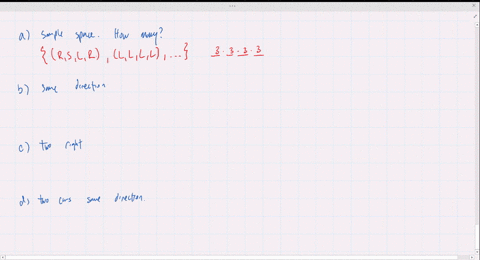 a) sample space. How many?
{ (R,S,L,R) , (L,L,L,L) , ... } 3 · 3 · 3 · 3
b) same direction
c) two right
d) two cars same direction.